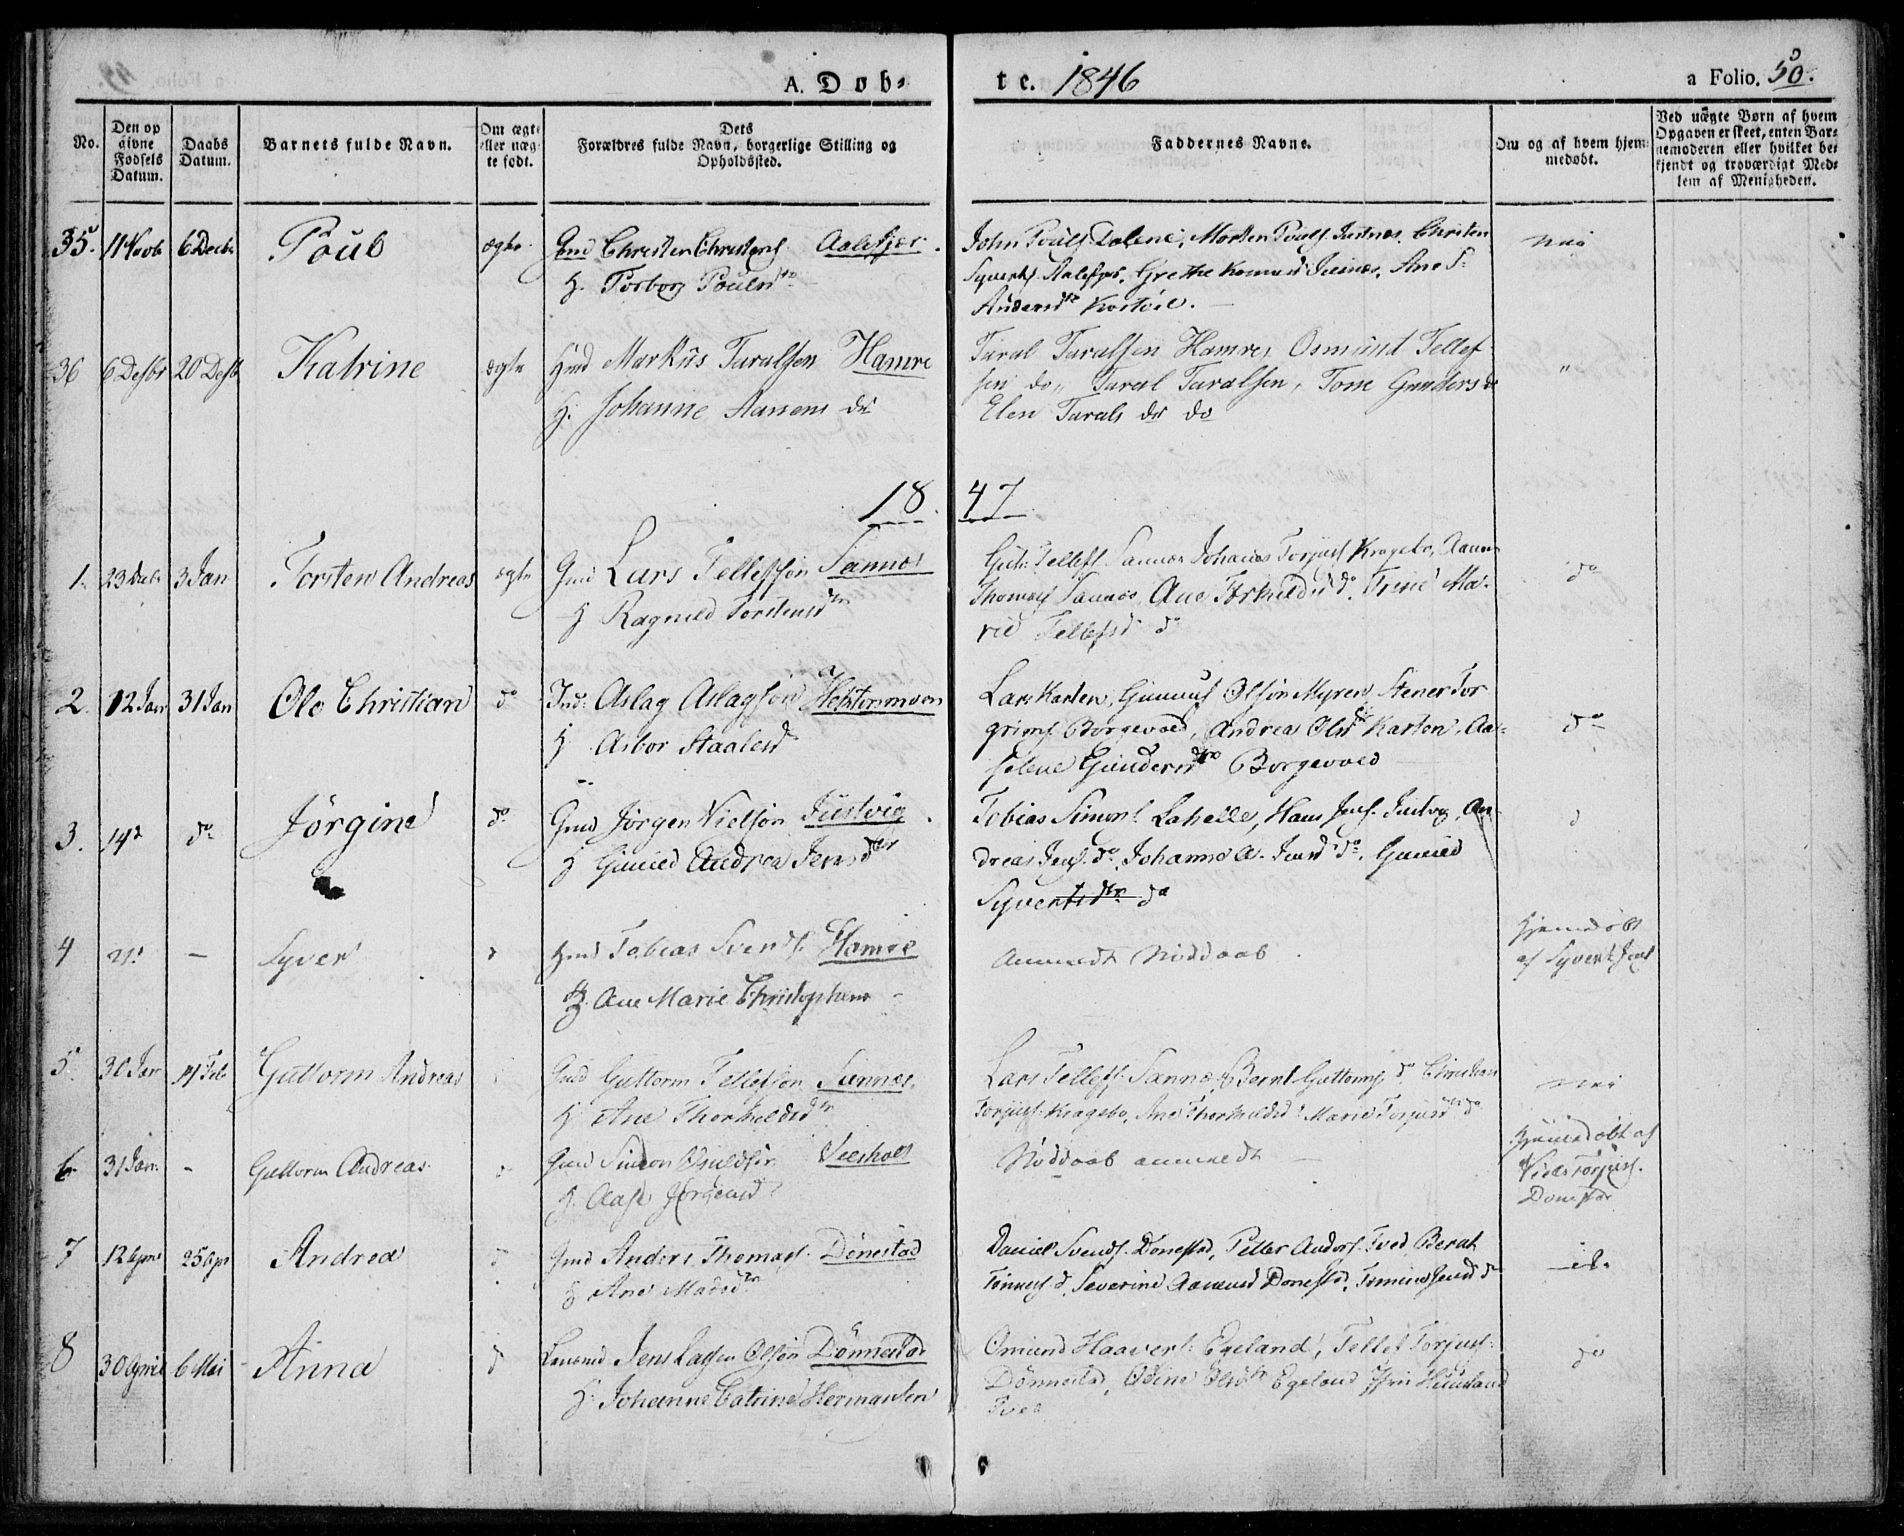 A. Døbte. 1846
a Folio. 50.
No.
Den opgivne Fødsels Datum.
Daabs Datum.
Barnets fulde Navn.
Om ægte eller uægte født.
Dets Forældres fulde Navn, borgerlige Stilling og Opholdssted.
Faddernes Navne.
Om og af hvem hjemmedøbt.
Ved uægte Børn af hvem Opgaven er skeet, enten Barnemoderen eller hvilket bekjendt og troværdigt Medlem af Menigheden.
35. 11 Novb 6 Decbr Poul ægte Gmd Christen Christens Aalefjær.
H. Torborg Poulsd
John Pouls Dolene, Morten Pouls Justnes, Christen
Syverts Aalefjær, Grethe Justnes, Ane
Andersd
nei
36 6 Desbr 20 Desb Katrine ægte Hmd Markus Taralsen Hamre
H. Johanne Aanens dr
Taral Taralsen Hamre, Osmund Tellef
sen do, Taral Taralsen, Tone Gunders d
Elen Tarals dr do
"
1847
1. 23 Decbr 3 Jan Torsten Andreas ægte Gmd Lars Tellefsøn Sannes
H Ragnild Torstensd
Gut: Tellefs. Sannes Johanes Torjus Kragebo, Aanen
Thomas Sannes, Ane Thorkildsd do. Trine Ma-
rie Tellefsd do
do
2. 12 Jan 31 Jan Ole Christian do Ind: Aslag Aslagsøn
H Asbor Staalesd
Lars Karten, Gunnuf Olsøn Myren Stener Tor
grims Borgevoed, Andrea Olsd Karten, Aa-
selene Gundersd Borgevoed
do
3. 14d do Jørgine do Gmd Jørgen Nielsøn Justvig.
H Gunild Andrea Jensdtr
Tobias Simons Lahelle, Hans Jens. Justvig, An
dreas Jens. do, Johanne A. Jensd do, Gunild
Syvertsdtr do
4 21. — Syver Hmd Tobias Svends. Hamre
H. Ane Marie Christophers
Anmeldt Nøddaab
Hjemedøbt
af Syvert Jens
5. 30 Jan 14 Feb Guttorm Andreas Gmd Guttorm Tellefsøn Sannes.
H Ane Thorkildsd
Lars Tellefs. Sannes, Bernt Guttorms do Christian
Torjus. Kragebo, Ane Thorkildsd Marie Torjusd do
nei
6 31 Jan. - Guttorm Andreas. Gmd Simon
H. Aase Jørgensd
Nøddaab anmeldt —
Hjemedøbt af
Niels Torjus.
Donestad
7 12 April 25 Apr Andrea Gmd Anders Thomas. Dønestad
H Ane Madsd
Daniel Svends. Donestad, Petter Anders. Tved, Berat
Tønnes d, Severine Aanensd Donestd,
8 30 April 6 Mai Anna Jens Lassen Olsøn Dønnestad
H. Johanne Catrine Hermansen
Omund Haavers: Egeland, Tellef Torjus:
Dønnestad, Odine Olsd Egeland
Tved
do